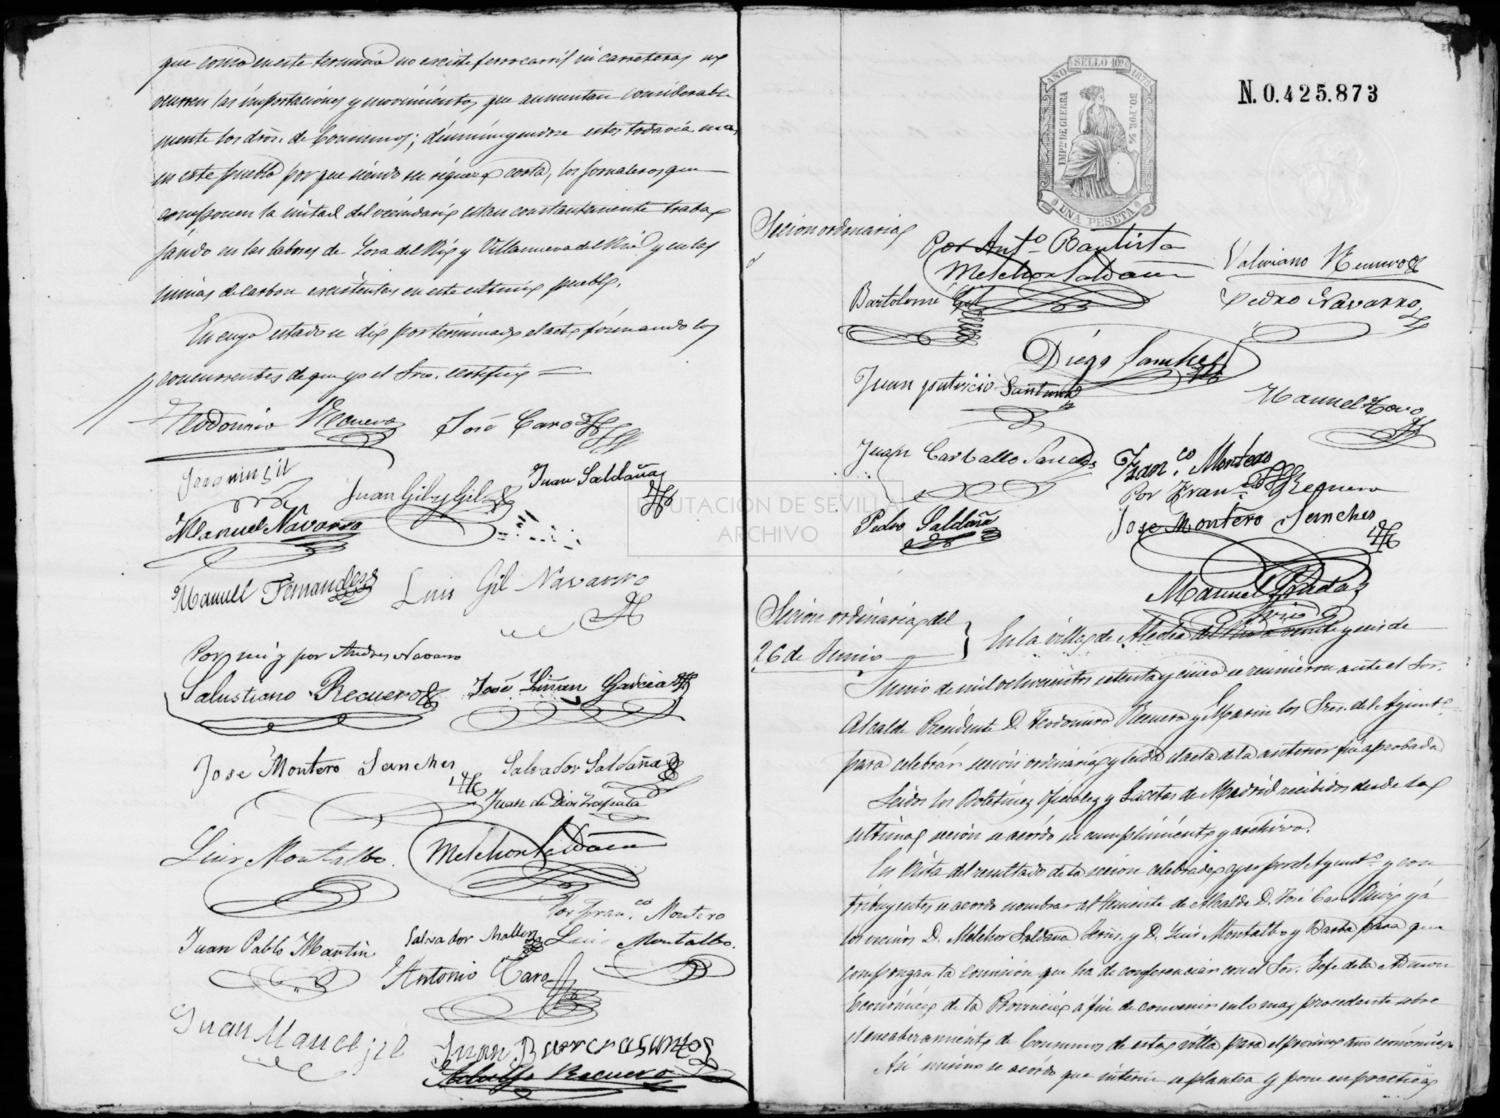 que como en este termino no existe ferrocarril ni carreteras no
ocurren las importaciones y movimiento, que aumentan considerable
mente los dros. de Consumos; disminuyendose estos todavia mas
en este pueblo por que siendo su riqueza corta, los jornaleros que
componen la mitad del vecindario estan constantemente traba
jando en las labores de Lora del Rio y Villanueva del Rio y en las
minas de carbon existentes en este ultimo pueblo.
En cuyo estado se dio por terminado el acto firmando los
concurrentes de que yo el Srio. certifico =
Teodomiro Recuero José Caro
Joaquin Gil Juan Gil y Gil Juan Saldaña
Manuel Navarro
Manuel Fernandez Luis Gil Navarro
Por mi y por Andres Navarro
Salustiano Recuero José Liñan Garcia
Jose Montero Sanches Salvador Saldaña
Juan de Dios Zapata
Luis Montalbo Melchor Saldaña
Por Fran.co Montero
Juan Pablo Martin Salvador Luis Montalbo.
Antonio Caro
Juan Manuel Gil
Adolfo Recuero
DIPUTACION DE SEVILLA
ARCHIVO
AÑO SELLO 10º 1875
IMPTO DE GUERRA
UNA PESETA
N. 0.425.873
Secion ordinaria
Por Anto. Bautista
Melchor Saldaña Valeriano Recuero
Bartolome Gil Pedro Navarro
Diego Sanches
Juan patricio Santana Manuel
Juan Carballo Sanches Fran.co Montero
Por Fran.co Recuero
Pedro Saldaña Jose Montero Sanches
Manuel
Srio
Secion ordinaria del
26 de Junio
En la villa de Alcolea del Rio a veinte y seis de
Junio de mil ochocientos setenta y cinco se reunieron ante el Sor.
Alcalde Presidente D. Teodomiro Recuero y Marin los Sres. del Ayunto.
para celebrar secion ordinaria y leida el acta de la anterior fue aprobada
Leidos los Boletines oficiales y Gacetas de Madrid recibidos desde la
ultima secion se acordó su cumplimiento y archivo.
En vista del resultado de la secion celebrada ayer por el Ayunto. y con
tribuyentes se acordo nombrar al Teniente de Alcalde D. José Caro Ruiz y á
los vecinos D. Melchor Saldaña y D. Luis Montalbo y Barba para que
compongan la comision que ha de conferenciar con el Sor. Jefe de la Admon
Económica de la Provincia a fin de convenir en lo mas procedente sobre
el encabezamiento de Consumos de esta villa para el proximo año económico.
Asi mismo se acordo que interin se plantea y pone en practica